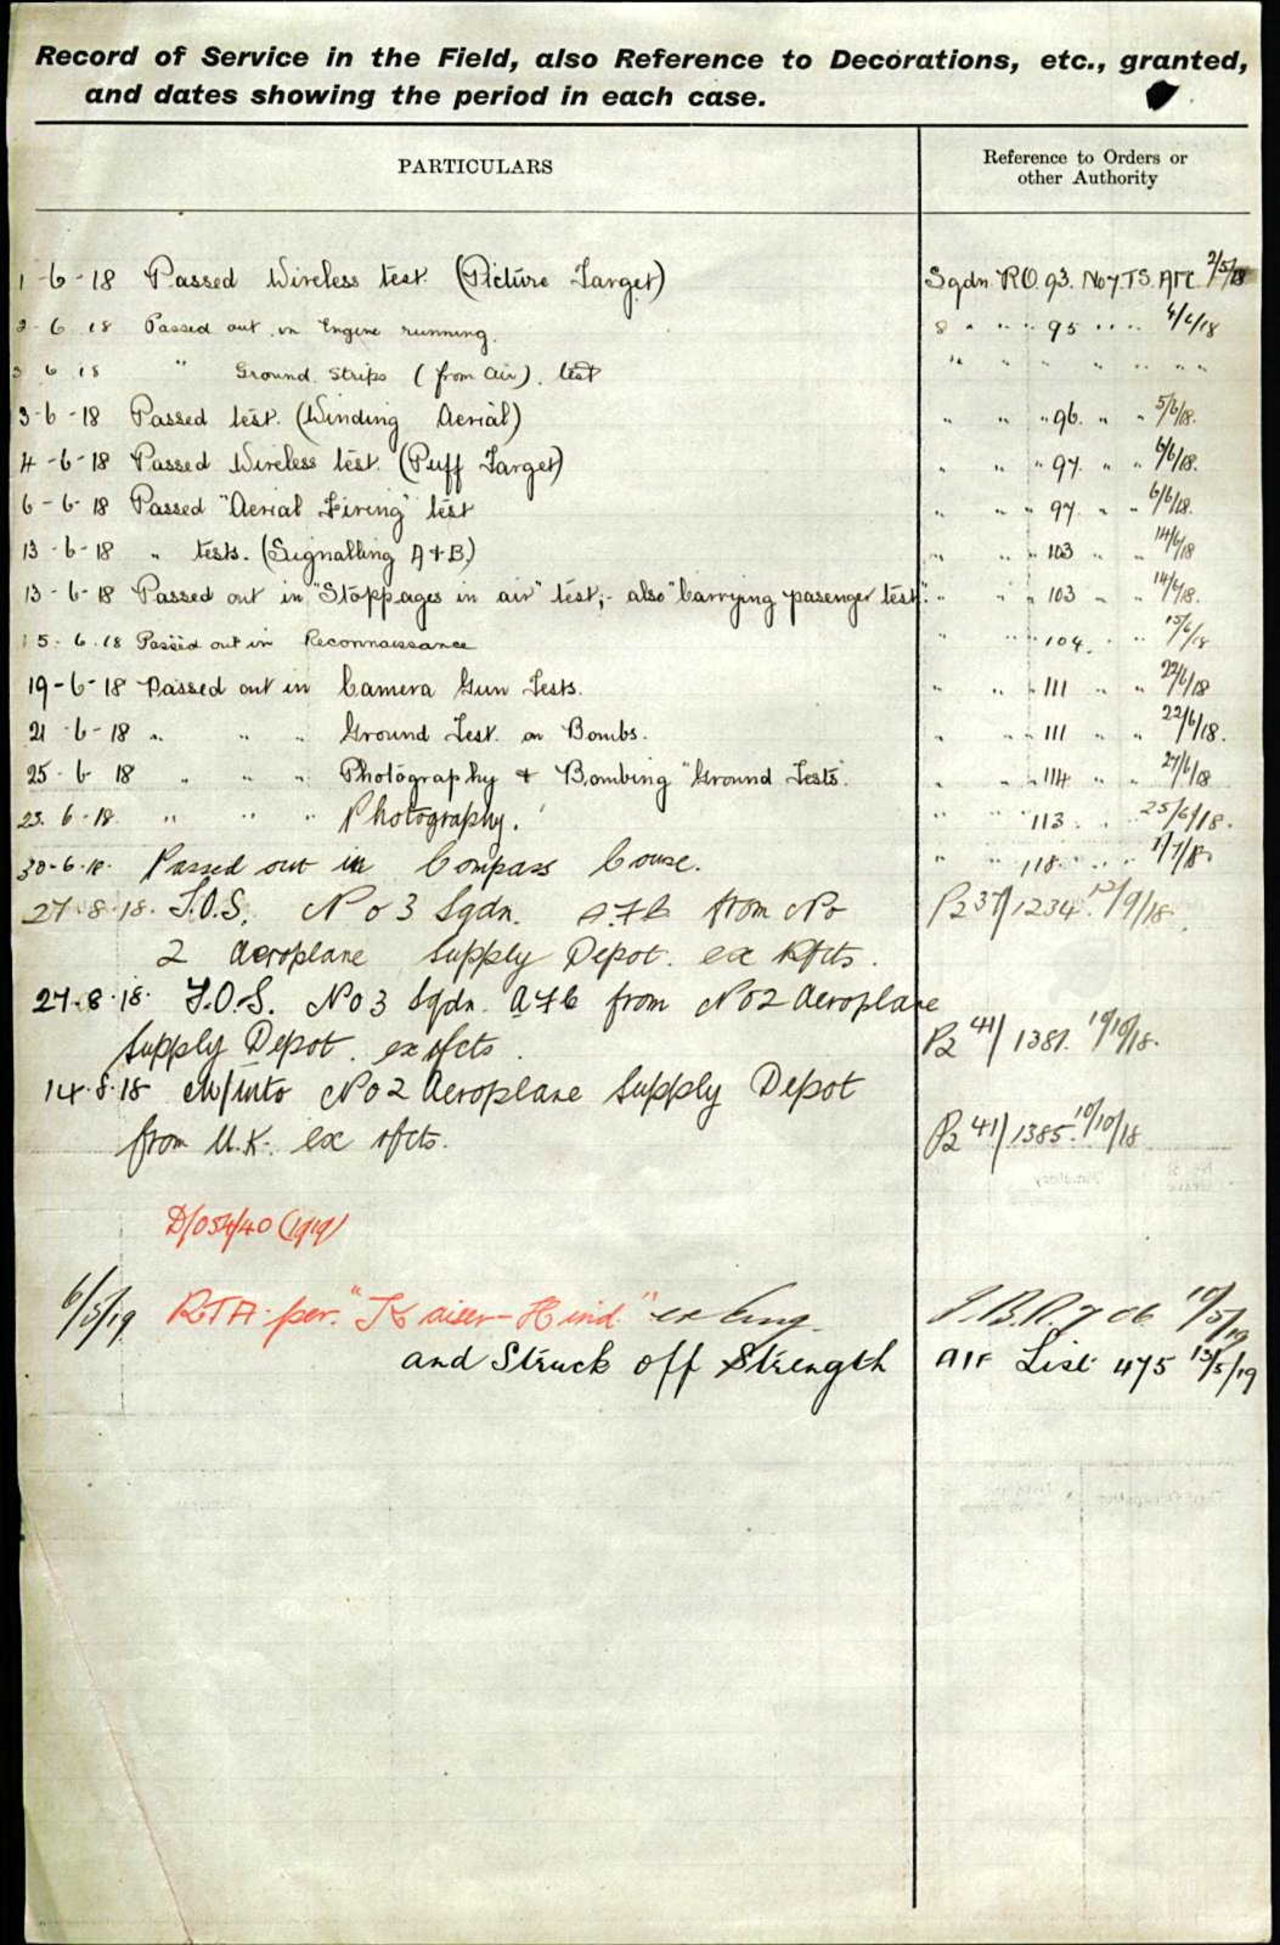 Record of Service in the Field, also Reference to Decorations, etc., granted,
and dates showing the period in each case.
PARTICULARS
Reference to Orders or
other Authority
1-6-18 Passed Wireless test. (Picture Target) Sqdn. R.O. 93. No 7.T.S. AFC. 2/5/18
2-6 18 Passed out in Engine running. " " " 95 " " 4/6/18
3 6 18 " Ground Strips (from air). test " " " " " "
3-6-18 Passed test. (Winding Aerial) " " " 96. " " 5/6/18.
4-6-18 Passed Wireless test. (Puff Target) " " " 97. " " 6/6/18.
6-6-18 Passed "Aerial Firing" test " " " 97. " " 6/6/18.
13-6-18 " tests. (Signalling A+B) " " " 103 " " 14/6/18
13-6-18 Passed out in "Stoppages in air" test;- also "Carrying pasenger test". " " " 103 " " 14/6/18.
15-6.18 Passed out in Reconnaissance " " " 104. " " 15/6/18
19-6-18 Passed out in Camera Gun Tests. " " " 111 " " 22/6/18
21-6-18 " " " Ground Test. on Bombs. " " " 111 " " 22/6/18.
25-6 18 " " " Photography + Bombing "Ground Tests". " " " 114 " " 27/6/18
23.6-18. " " " Photography. " " 113. " " 25/6/18.
30-6-18. Passed out in Compass Couse. " " 118. " " 1/7/18.
27-8-18. T.O.S. No 3 Sqdn. A.F.C from No P2 37/1234. 12/9/18.
2 Aeroplane Supply Depot. ex Rfcts.
27.8.18. T.O.S. No 3 Sqdn. A F C from No 2 Aeroplane
Supply Depot. ex rfcts. P2 41/1381. 10/10/18.
14.8.18 into No 2 Aeroplane Supply Depot
from U.K. ex rfcts. P2 41/1385. 10/10/18
D/054/40 (1919)
6/5/19 RTA per. "Kaiser-Hind" ex Eng. 10/5/19
and Struck off Strength AIF List 475 13/5/19